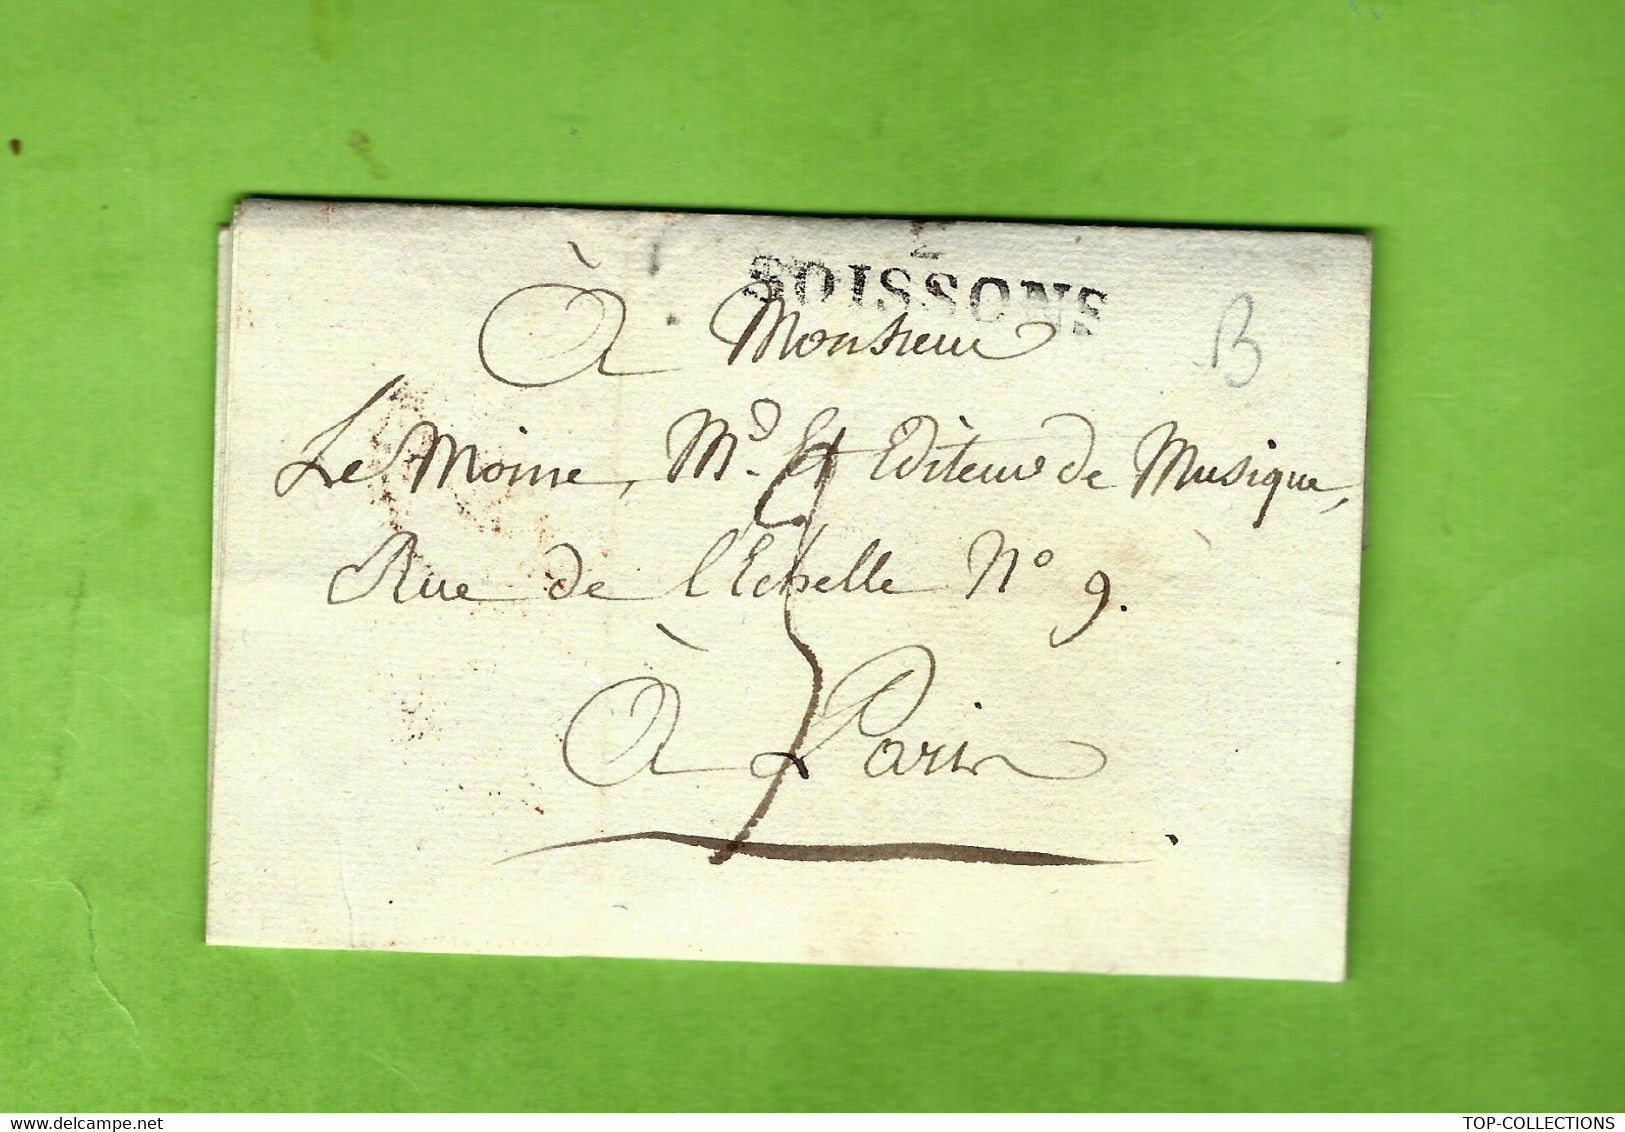 2
SOISSONS
À Monsieur
B
Le Moine, Md. Et Editeur de Musique,
Rue de l'Echelle No 9.
À Paris
www.delcampe.net
TOP-COLLECTIONS